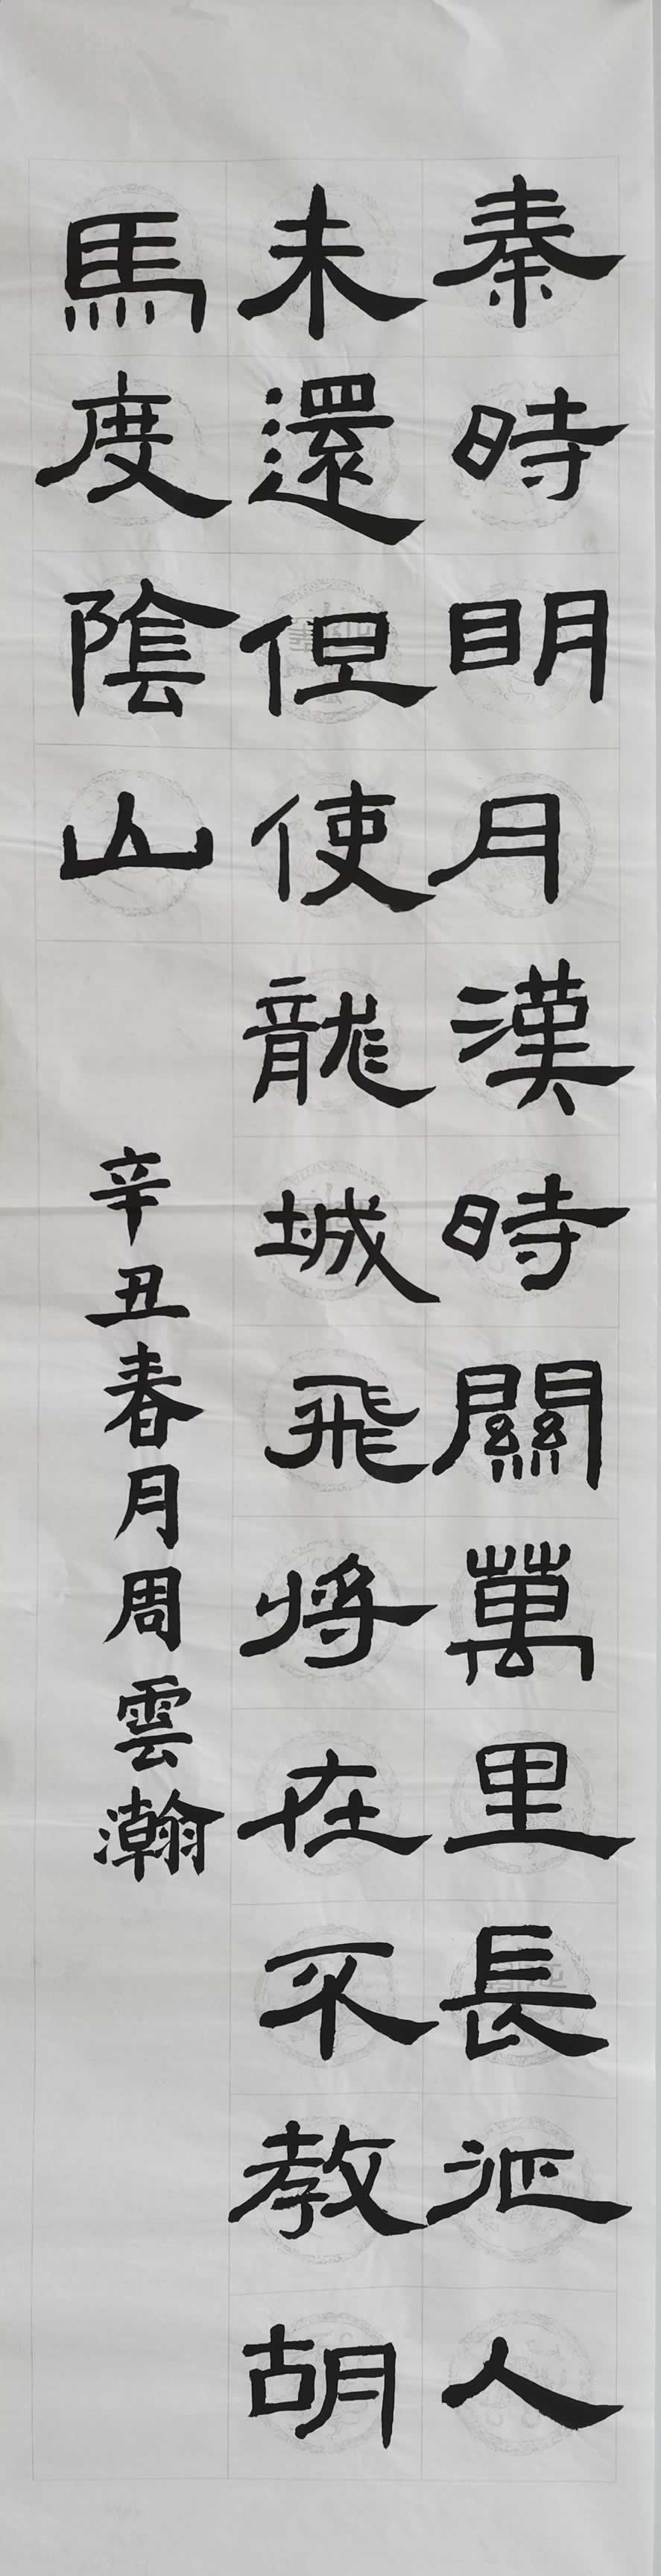 秦時明月漢時關萬里長征人
未還但使龍城飛將在不教胡
馬度陰山
辛丑春月周雲瀚